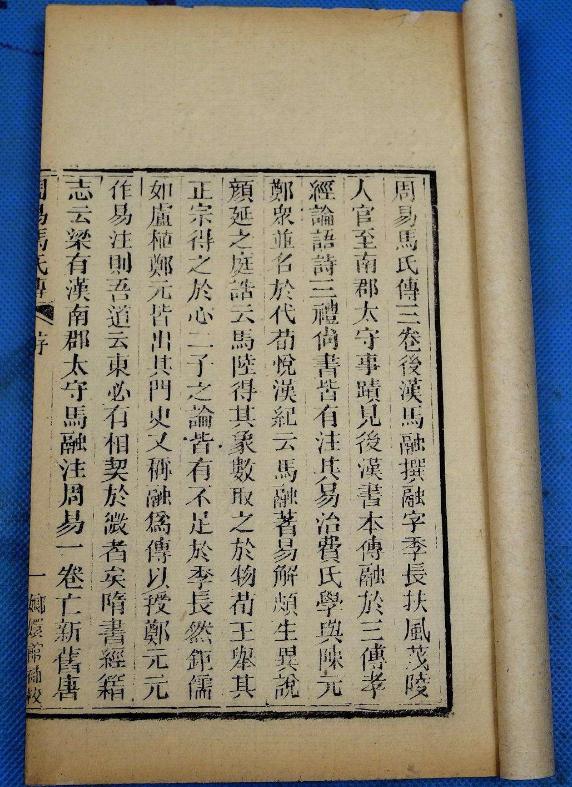 周易馬氏傳三卷後漢馬融撰融字季長扶風茂陵
人官至南郡太守事蹟見後漢書本傳融於三傳孝
經論語詩三禮尚書皆有注其易治費氏學與陳元
鄭衆並名於代荀悅漢紀云馬融著易解頗生異說
顔延之庭誥云馬陸得其象數取之於物荀王舉其
正宗得之於心二子之論皆有不足於季長然鉅儒
如盧植鄭元皆出其門史又稱融爲傳以授鄭元元
作易注則吾道云東必有相契於微者矣隋書經籍
志云梁有漢南郡太守馬融注周易一卷亡新舊唐
周易馬氏傳 序 一 嫏嬛館補校